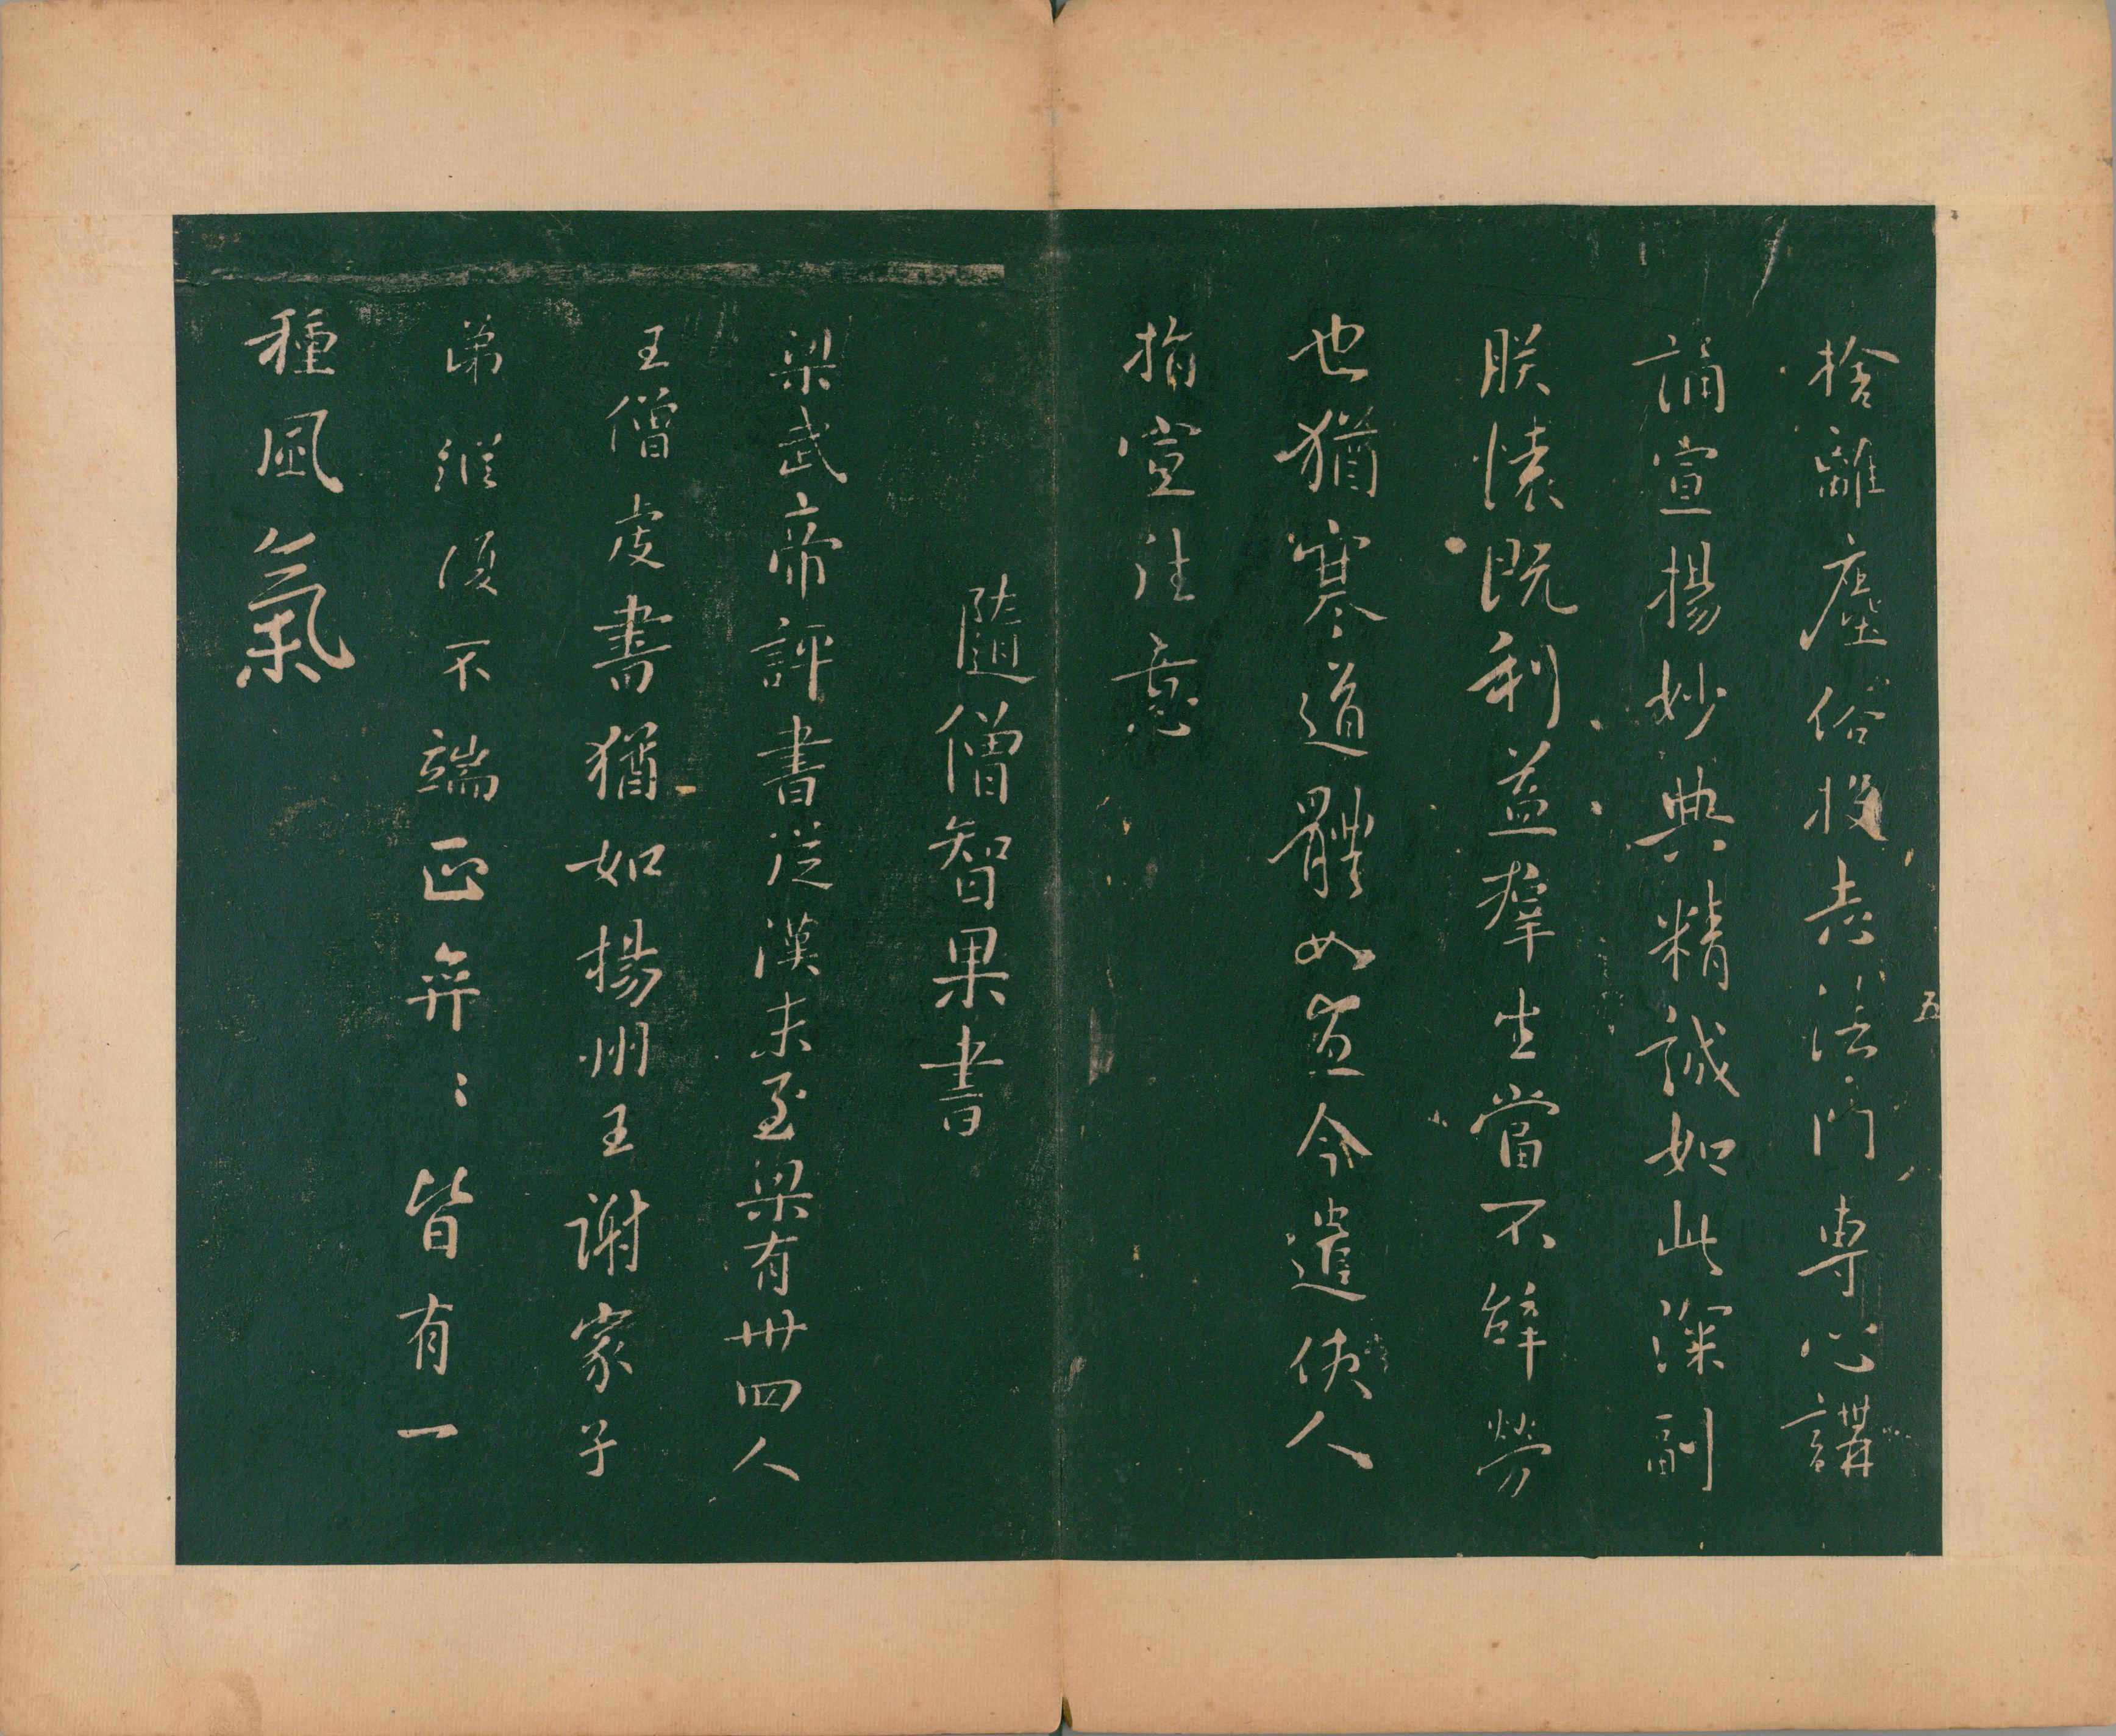 捨離塵俗投志法門專心講
誦宣揚妙典精誠如此深副
朕懷既利益群生當不辭勞
也猶寒道體如宜今遣使人
指宣往意
隨僧智果書
梁武帝評書從漢末至梁有卅四人
王僧虔書猶如揚州王謝家子
弟縱復不端正弈〻皆有一
種風氣
五